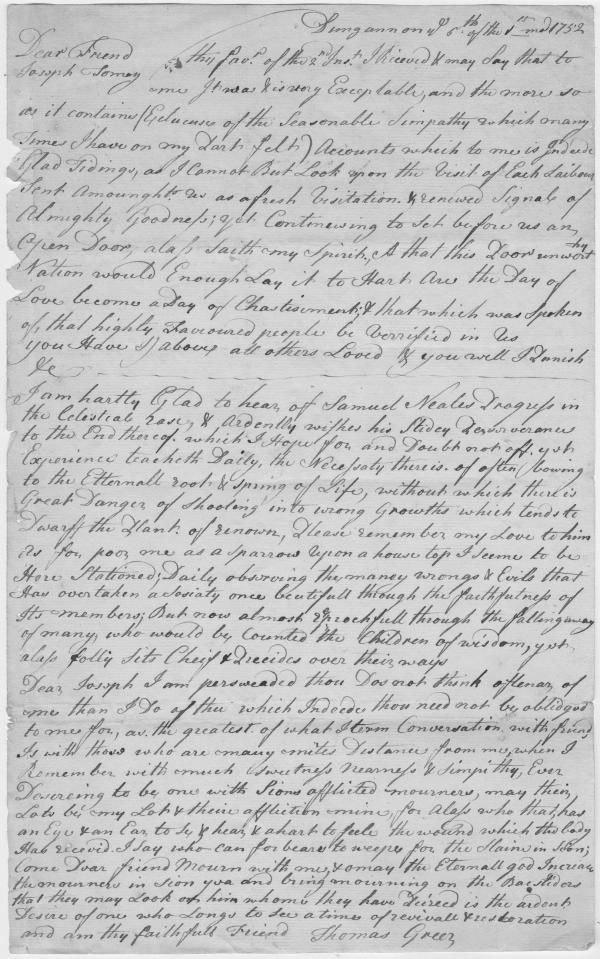 Dungannon ye 6th of the 1st mo 1752
Dear Friend
Joseph Tomey thy favr. of the 2nd Inst. I Receved & may Say that to
me It was & is very Exceptable, and the more so
as it contains (Exclucuse of the Seasonable Simpathy which many
Times I have on my Part felt) Accounts which to me is Indeede
Glad Tidings, as I Cannot But Look upon the Visit of Each Laibour
Sent Amounght us as a fresh Visitation. & renewed Signals of
Almighty Goodness; yet Continewing to Set before us an
Open Door, alass saith my Spirit, A that this Poor unworthy
Nation would Enough Lay it to Hart Are the Day of
Love become a Day of Chastisment; & that which was Spoken
of, that highly Favoured people be Verrified in Us
you Have I above all others Loved & you will I Punish
&c
I am hartly Glad to hear of Samuel Neales Progress in
the Celestiale Race, & Ardently wishes his Stedey Perseverance
to the End thereof. which I Hope for, and Doubt not off. yet
Experience teacheth Daily, the Necessaty there is of often bowing
to the Etternall root & Spring of Life, without which there is
Great Danger of Shooting into wrong Growths which tends to
Dwarff the Plant of renown, Please remember my Love to him
As for poor me as a Sparrow upon a house top I Seem to be
Here Stationed; Daily observing the maney wrongs & Evils that
Has overtaken a Sosiaty once beutifull through the faithfulness of
Its members; But now almost reprochfull through the falling away
of many, who would be Counted the Children of wisdom, yet
alass folly Sits Cheif & Precides over their ways
Dear Joseph I am persweaded thou Dos not think oftenar of
me than I Do of thee which Indeede thou need not be oblidged
to me for, as the greatest of what I term Conversation with friends
Is with those who are many miles Distance from me, when I
Remember with much Sweetness Nearness & Simpithy, Ever
Desireing to be one with Sions afflicted mourners, may their
Lots be my Lot & their affliction mine, for Alass who that has
an Eye & an Ear to Se & hear, & a hart to feele the wound which the body
Has receved I say who can forbeare to weepe for the Slaine in Sion;
Come Dear friend Mourn with me, & may the Eternall god Increase
the mourners in Sion yea and bring mourning on the Bacsliders
that they may Look on him whome they have Peirced is the ardent
Desire of one who Longs to See a time of revivall & restoration
and am thy faithfull Friend Thomas Greer